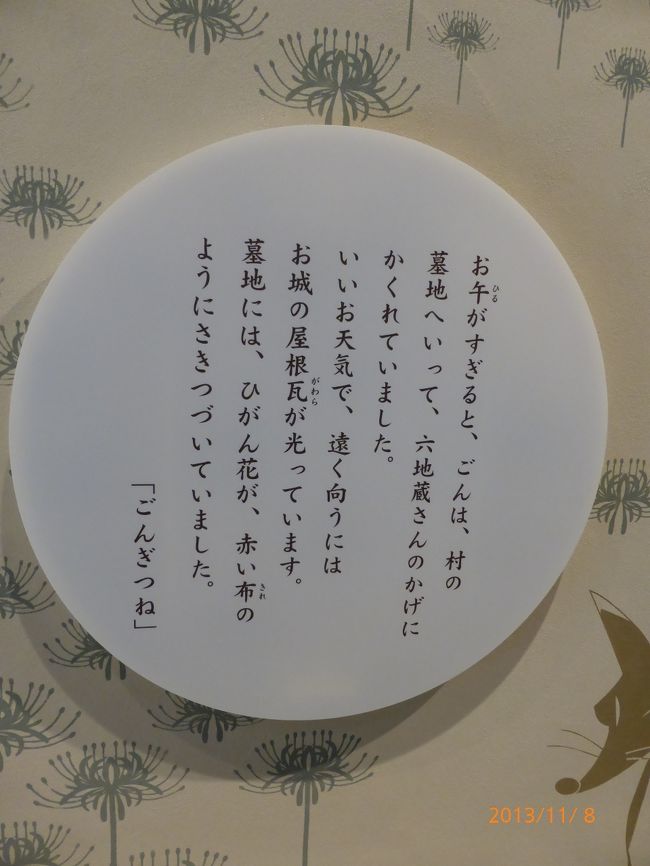 お午がすぎると、ごんは、村の
墓地へいって、六地蔵さんのかげに
かくれていました。
いいお天気で、遠く向うには
お城の屋根瓦が光っています。
墓地には、ひがん花が、赤い布の
ようにさきつづいていました。
「ごんぎつね」
ひる
がわら
きれ
2013/11/ 8